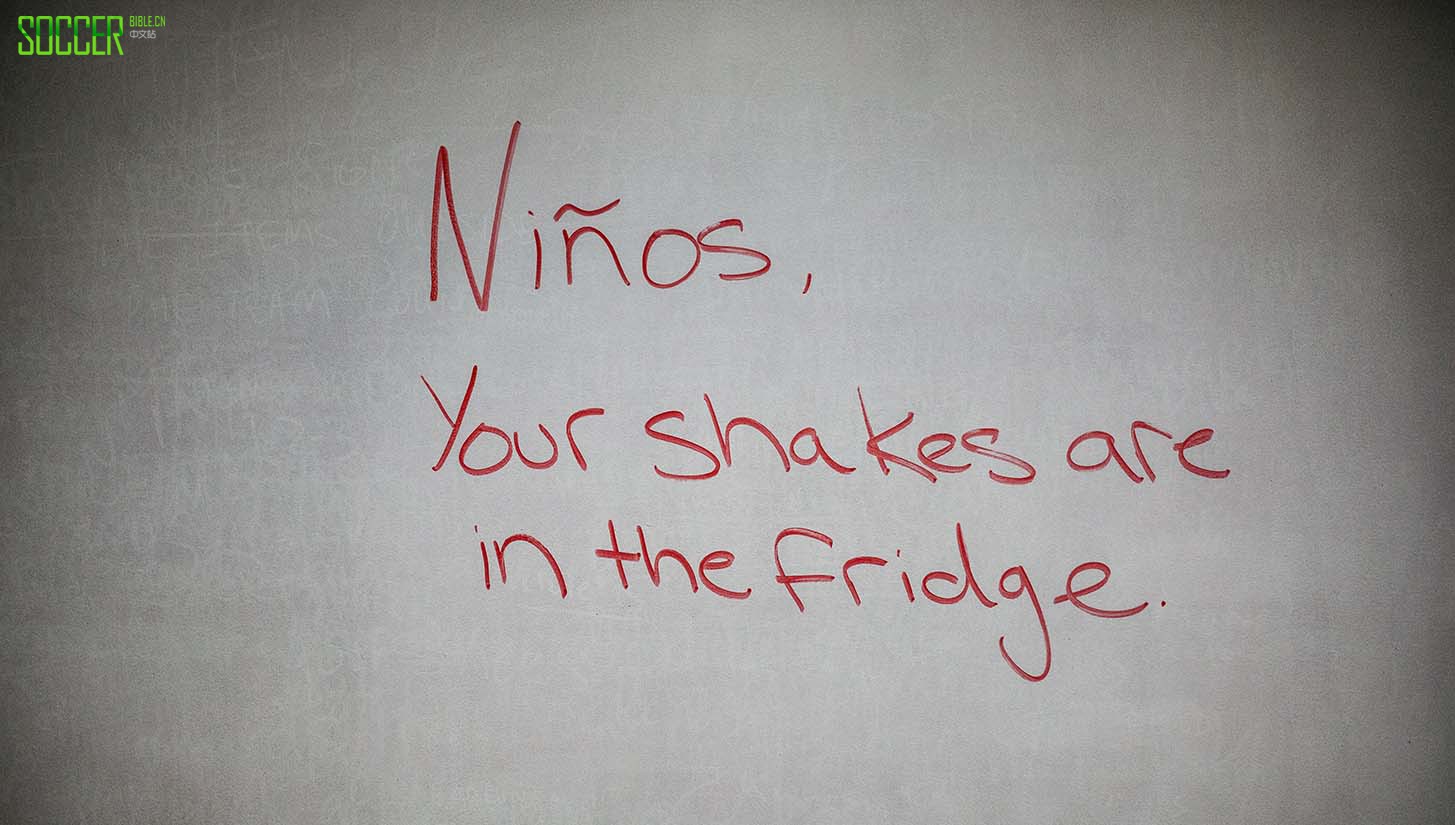 SOCCER BIBLE.CN
中文站
Niños,
Your shakes are
in the fridge.